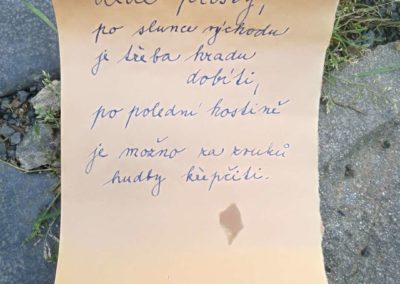 prosby,
po slunce východu
je třeba hradu
dobíti,
po polední hostině
je možno za zvuků
hudby křepčiti.